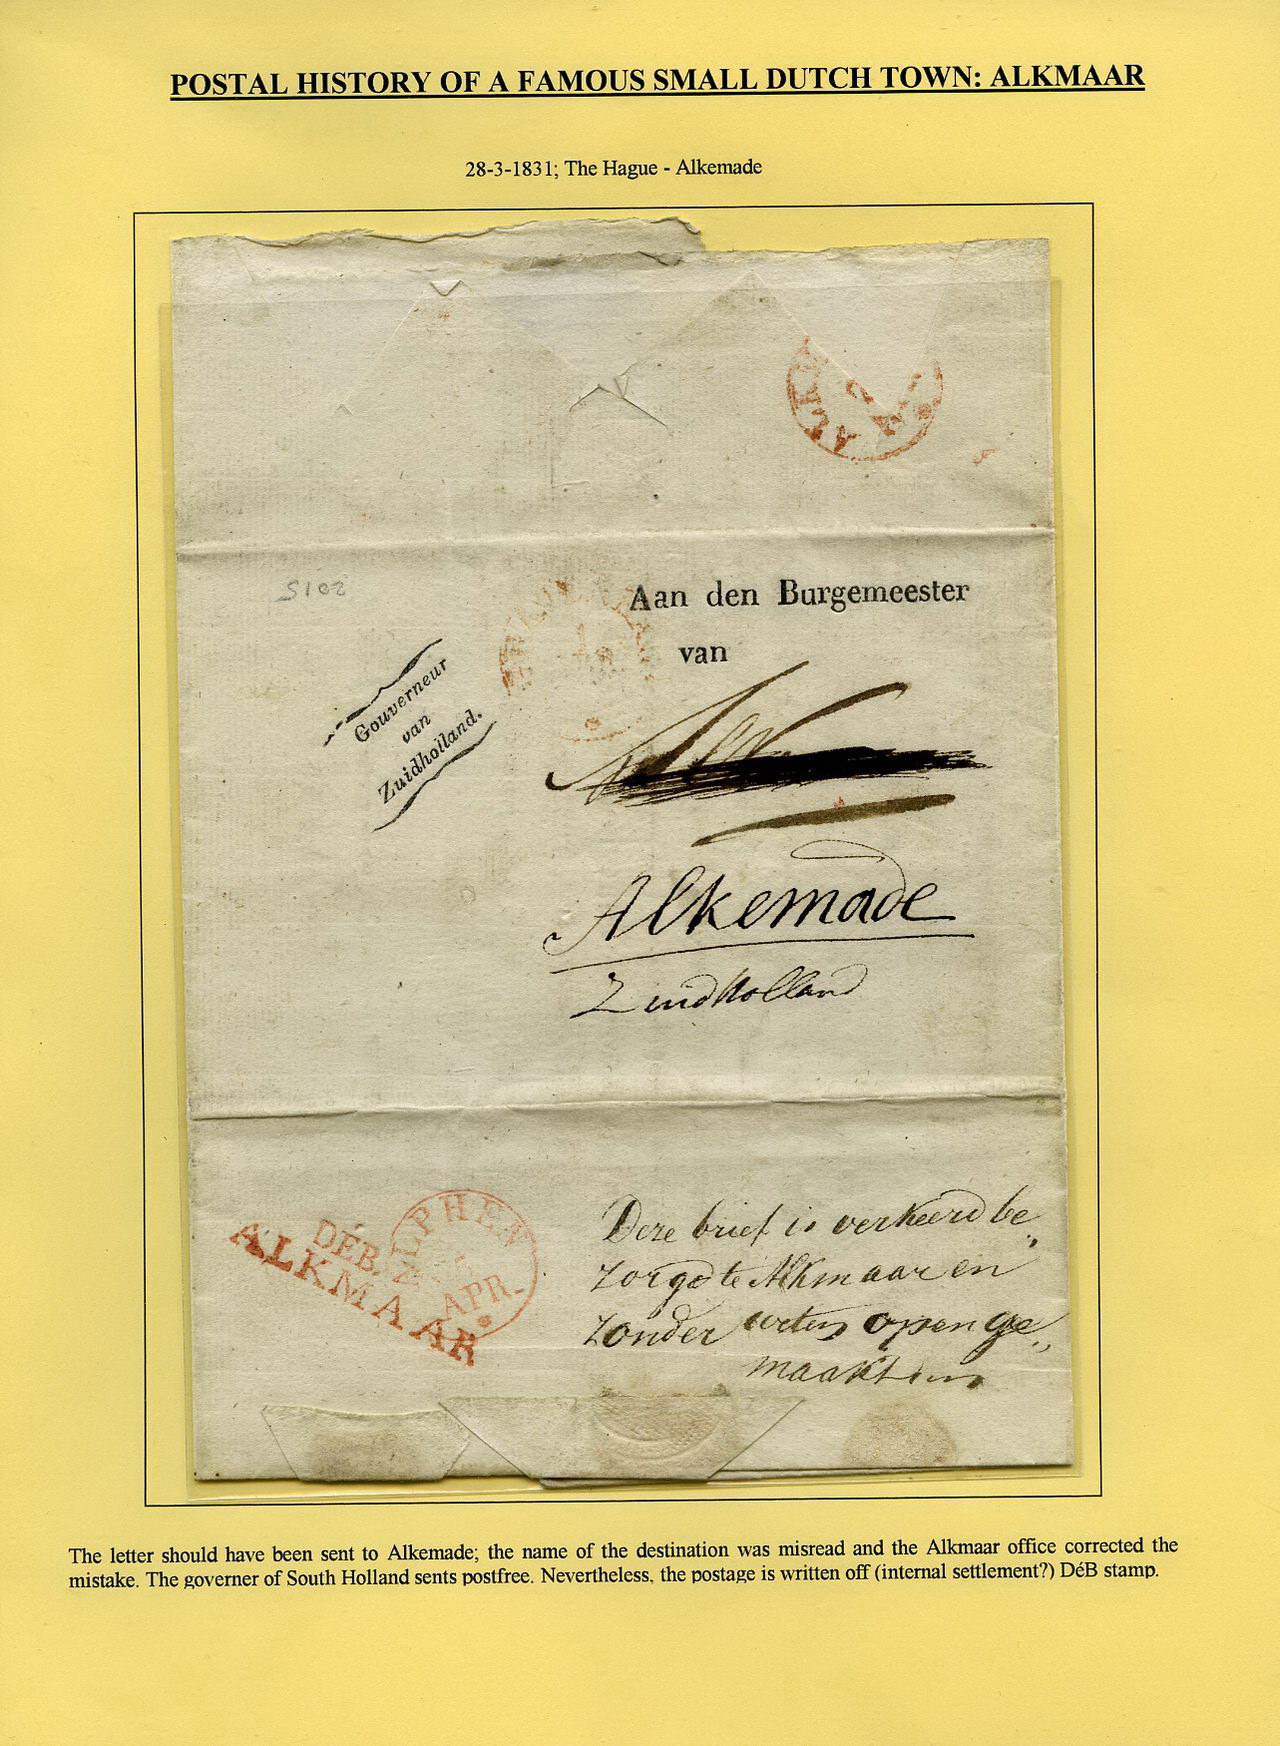 POSTAL HISTORY OF A FAMOUS SMALL DUTCH TOWN: ALKMAAR
28-3-1831; The Hague - Alkemade
5102
Aan den Burgemeester
van
Gouverneur
van
Zuidholland.
Alkemade
Zuidholland
ALPHEN
APR.
DÉB.
ALKMAAR
Deze brief is verkeerd be„
zorgd te Alkmaar en
zonder weten open ge„
maakt
The letter should have been sent to Alkemade; the name of the destination was misread and the Alkmaar office corrected the
mistake. The governer of South Holland sents postfree. Nevertheless, the postage is written off (internal settlement?) DéB stamp.